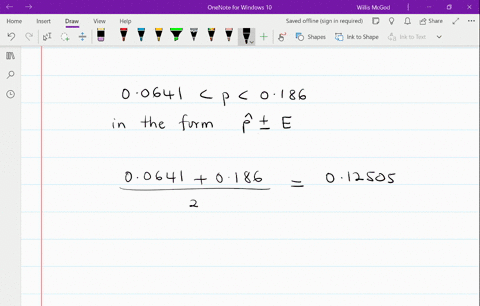 OneNote for Windows 10
Willis McGod
Home Insert Draw View Help
Saved offline (sign in required)
Share
Shapes
Ink to Shape
Ink to Text
0.0641 < p < 0.186
in the form p̂ ± E
0.0641 + 0.186 = 0.12505
2